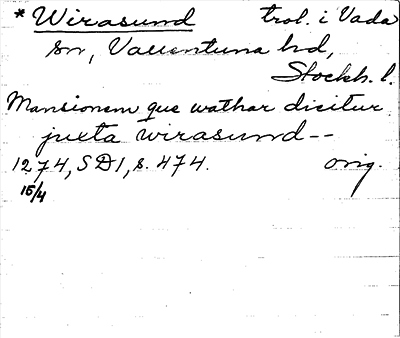 * Wirasund trol. i Vada
sn, Vallentuna hd,
Stockh. l.
Mansionem que wathar dicitur
juxta wirasund--
1274, SD1, s. 474. orig.
15/4